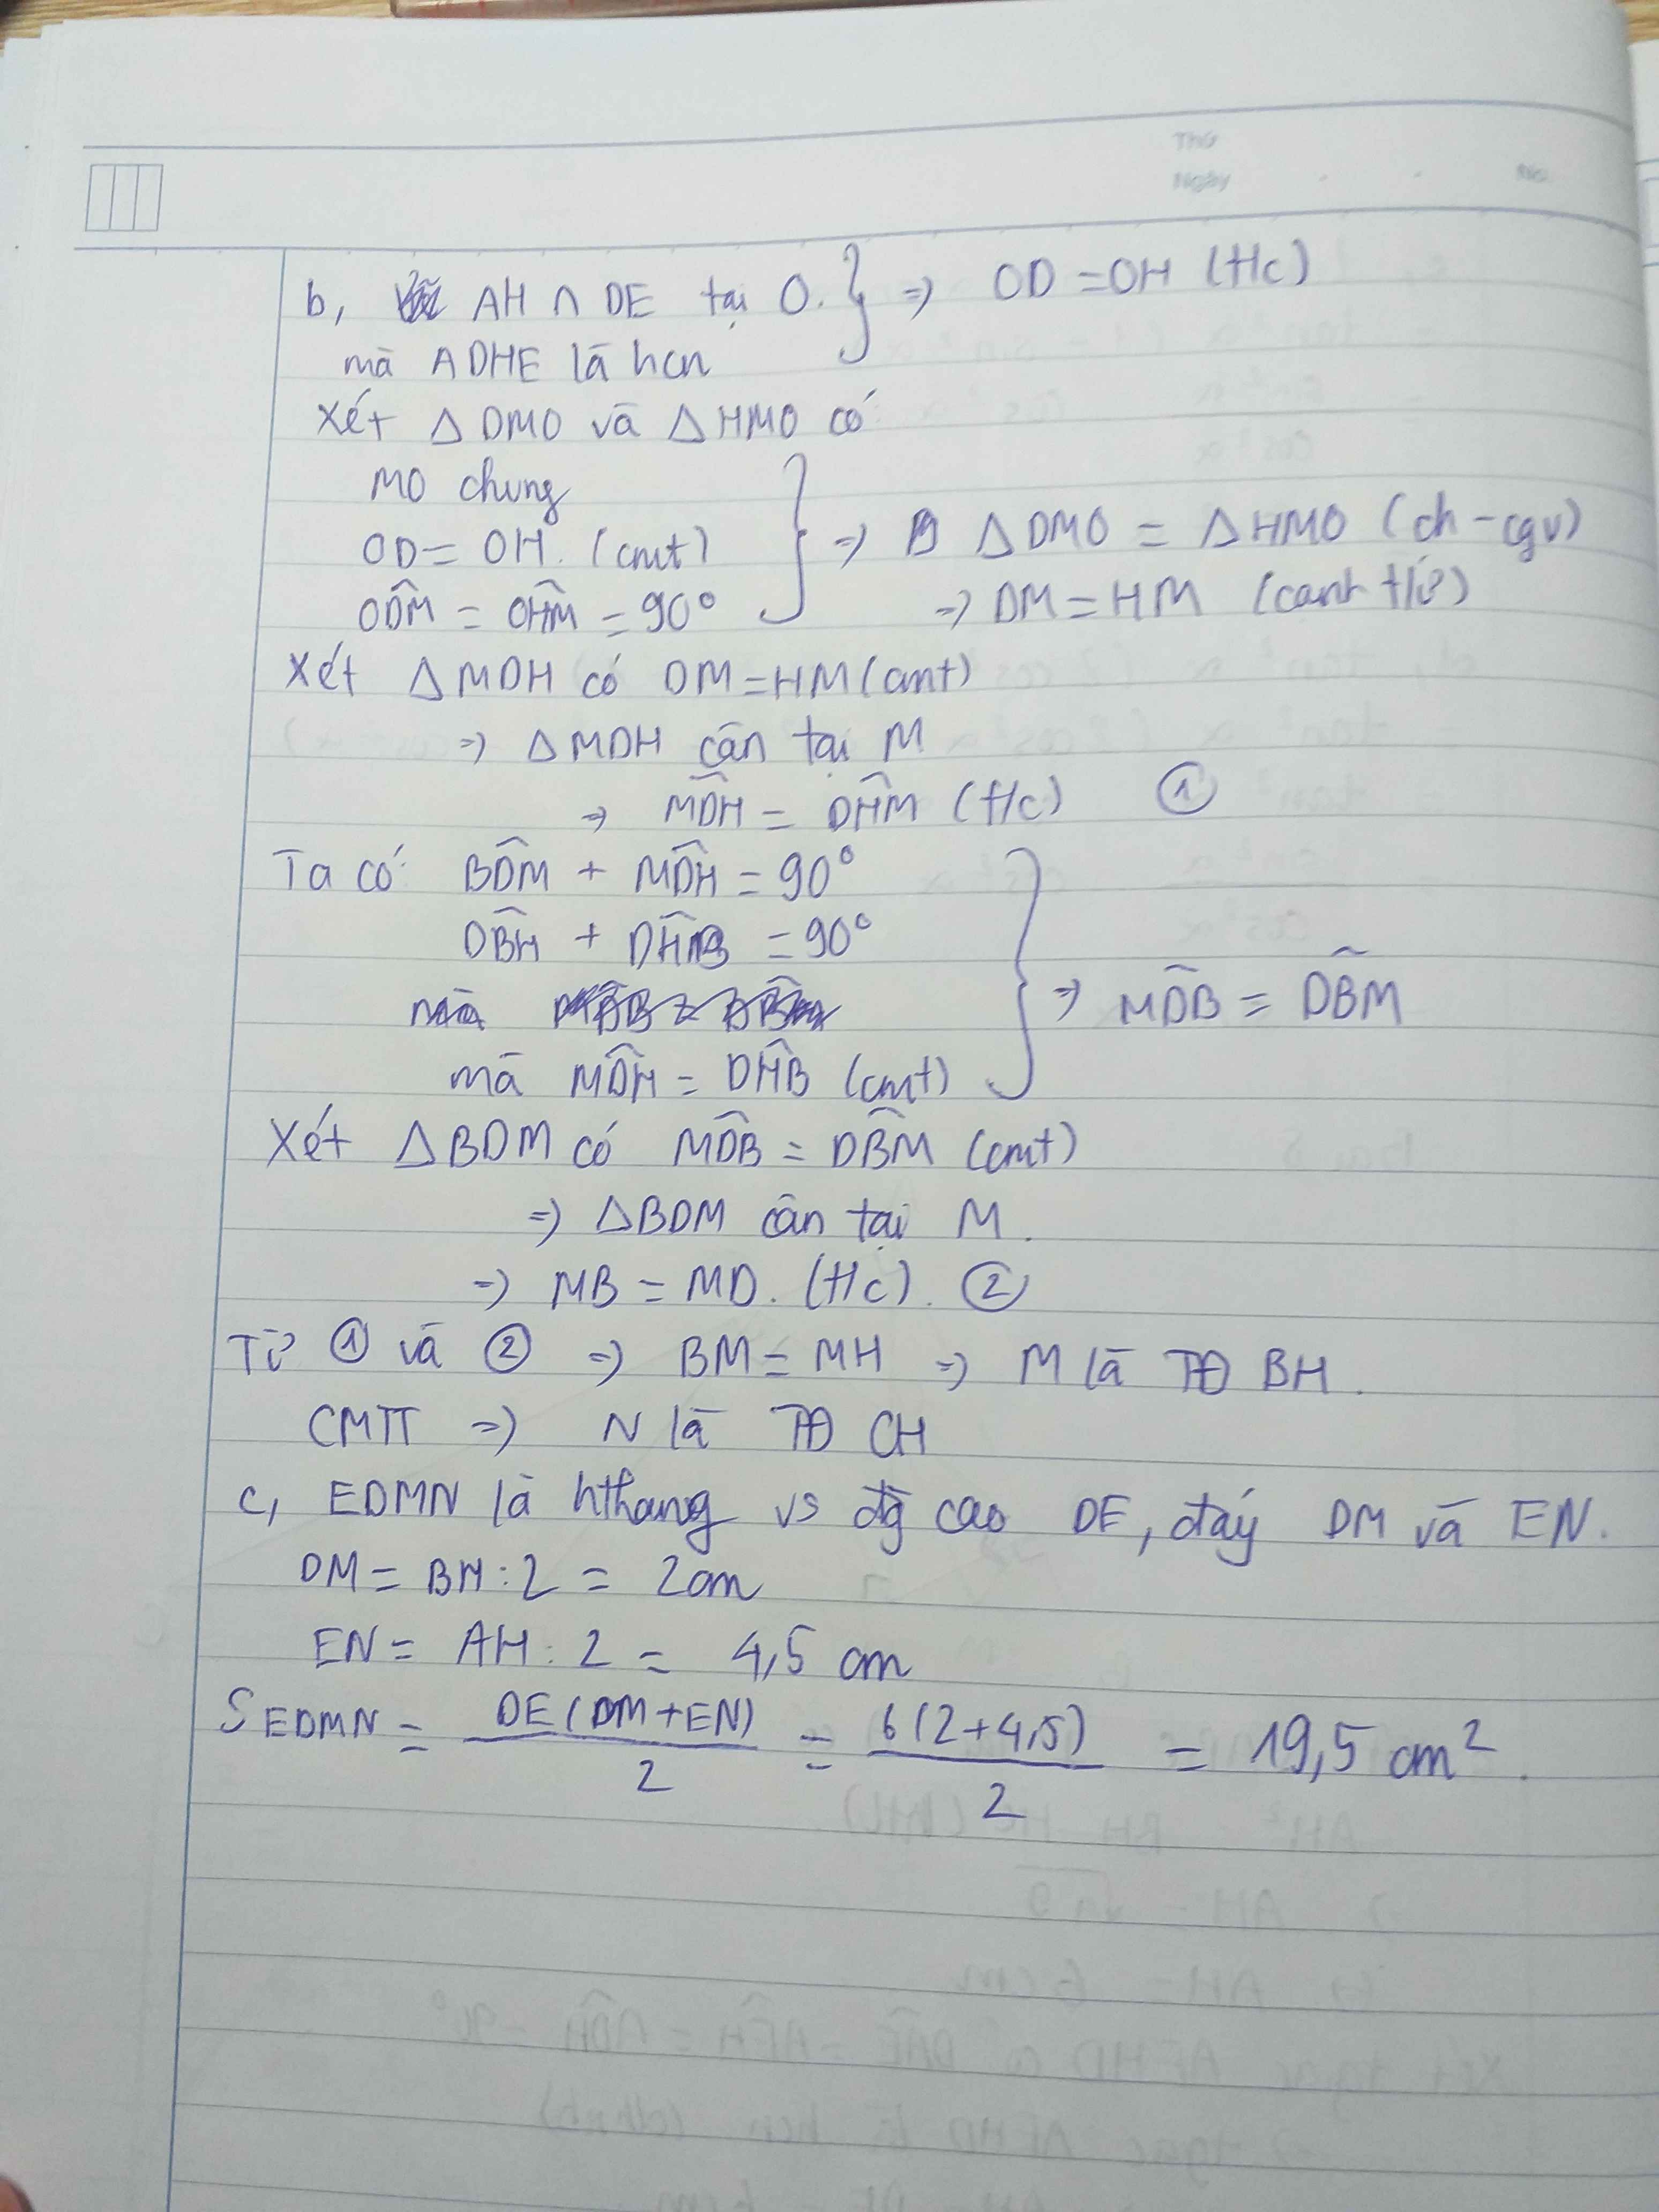 Thứ
Ngày
No.
b, AH ∩ DE tại O. } => OD = OH (t/c)
mà ADHE là hcn
Xét △ DMO và △ HMO có
MO chung
OD = OH. (cmt) } => △ DMO = △ HMO (ch - cgv)
ODM̂ = OHM̂ = 90° => DM = HM (cạnh t/ứ)
Xét △ MDH có DM = HM (cmt)
=> △ MDH cân tại M
=> MDĤ = DHM̂ (t/c) ①
Ta có: BDM̂ + MDĤ = 90°
DBĤ + DHB̂ = 90°
mà MDĤ = DHB̂ (cmt) } => MDB̂ = DBM̂
Xét △ BDM có MDB̂ = DBM̂ (cmt)
=> △ BDM cân tại M.
=> MB = MD. (t/c). ②
Từ ① và ② => BM = MH => M là TĐ BH.
CMTT => N là TĐ CH
c, EDMN là hthang vs đg cao DE, đáy DM và EN.
DM = BH : 2 = 2cm
EN = AH : 2 = 4,5 cm
S EDMN = DE(DM+EN)/2 = 6(2+4,5)/2 = 19,5 cm².